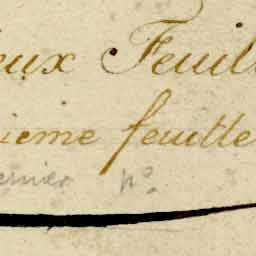 eux Feuill
ieme feuille
ernier n°